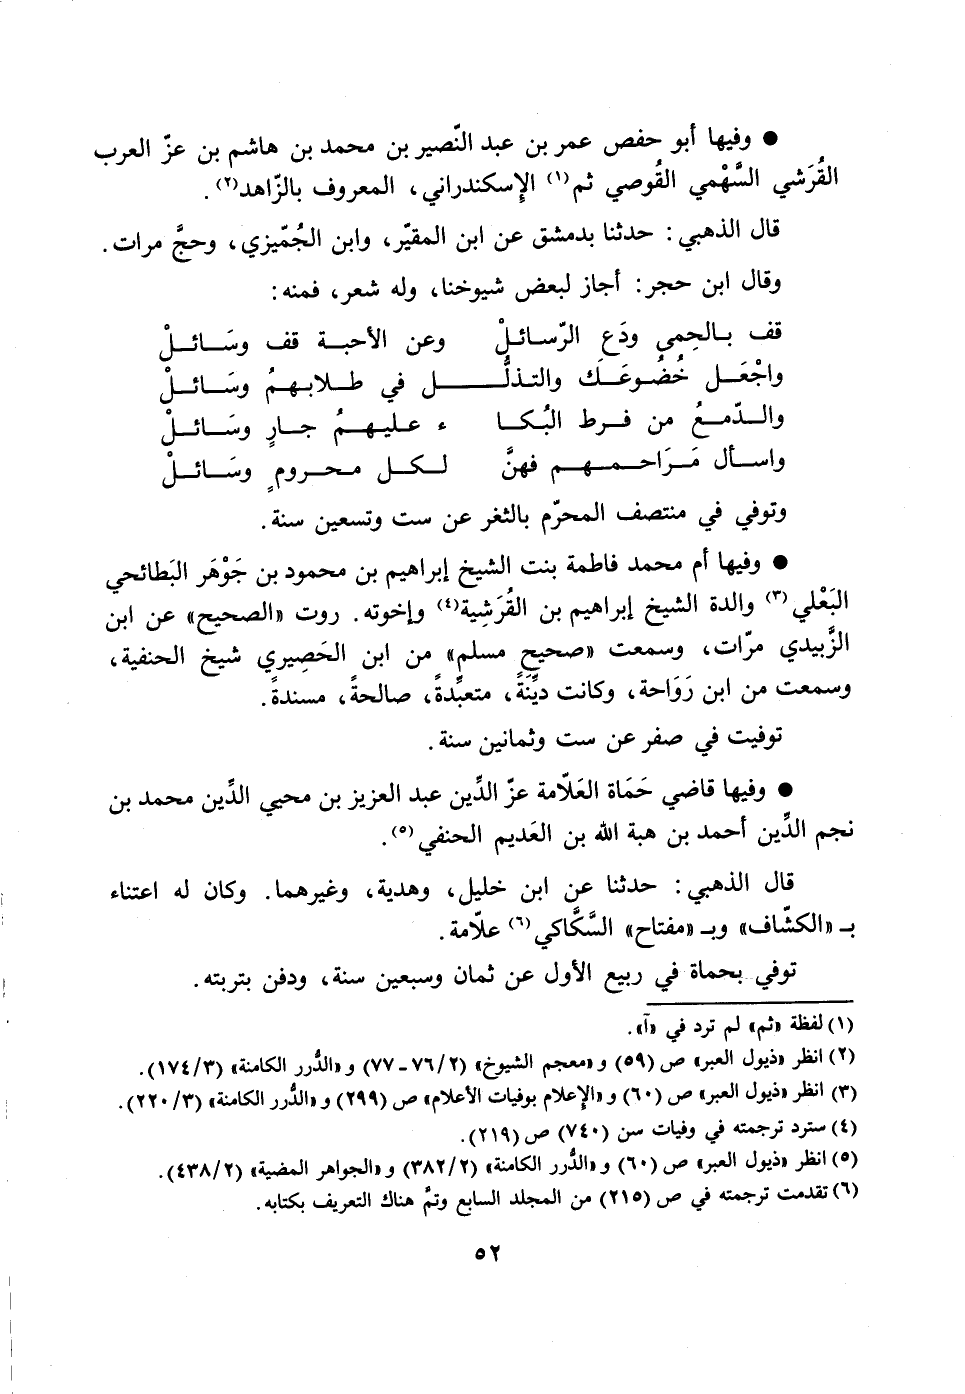 ● وفيها أبو حفص عمر بن عبد النّصير بن محمد بن هاشم بن عزّ العرب
القُرَشي السَّهْمي القُوصي ثم(١) الإسكندراني، المعروف بالزّاهد(٢).
قال الذهبي: حدثنا بدمشق عن ابن المقيّر، وابن الجُمّيزي، وحجَّ مرات.
وقال ابن حجر: أجاز لبعض شيوخنا، وله شعر، فمنه:
قف بالحِمى ودَع الرّسائلْ وعن الأحبة قف وسَائلْ
واجْعَل خُضُوعَكَ والتذلُّل في طلابهمُ وسَائلْ
والدّمعُ من فرط البُكا ء عليهمُ جارٍ وسَائلْ
واسأل مَرَاحمهم فهنَّ لكل محرومٍ وسَائلْ
وتوفي في منتصف المحرّم بالثغر عن ست وتسعين سنة.
● وفيها أم محمد فاطمة بنت الشيخ إبراهيم بن محمود بن جَوْهَر البَطائحي
البَعْلي(٣) والدة الشيخ إبراهيم بن القُرَشِية(٤) وإخوته. روت «الصحيح» عن ابن
الزَّبيدي مرّات، وسمعت «صحيح مسلم» من ابن الحَصِيري شيخ الحنفية،
وسمعت من ابن رَوَاحة، وكانت ديِّنَةً، متعبِّدةً، صالحةً، مسندةً.
توفيت في صفر عن ست وثمانين سنة.
● وفيها قاضي حَمَاة العَلاّمة عزّ الدِّين عبد العزيز بن محيي الدِّين محمد بن
نجم الدِّين أحمد بن هبة الله بن العَديم الحنفي(٥).
قال الذهبي: حدثنا عن ابن خليل، وهدية، وغيرهما. وكان له اعتناء
بـ «الكشّاف» وبـ «مفتاح» السَّكَّاكي(٦) علاّمة.
توفي بحماة في ربيع الأول عن ثمان وسبعين سنة، ودفن بتربته.
(١) لفظة «ثم» لم ترد في «آ».
(٢) انظر «ذيول العبر» ص (٥٩) و «معجم الشيوخ» (٢/ ٧٦ـ ٧٧) و «الدُّرر الكامنة» (٣/ ١٧٤).
(٣) انظر «ذيول العبر» ص (٦٠) و «الإعلام بوفيات الأعلام» ص (٢٩٩) و «الدُّرر الكامنة» (٣/ ٢٢٠).
(٤) سترد ترجمته في وفيات سن (٧٤٠) ص (٢١٩).
(٥) انظر «ذيول العبر» ص (٦٠) و «الدُّرر الكامنة» (٢/ ٣٨٢) و «الجواهر المضية» (٢/ ٤٣٨).
(٦) تقدمت ترجمته في ص (٢١٥) من المجلد السابع وتمَّ هناك التعريف بكتابه.
٥٢